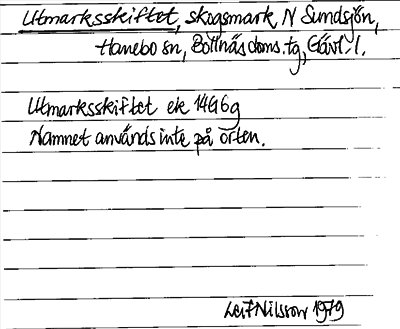 Utmarksskiftet, skogsmark, N Sundsjön,
Hanebo sn, Bollnäs doms.tg, Gävl. l.
Utmarksskiftet ek 14G6g
Namnet används inte på orten.
Leif Nilsson 1979